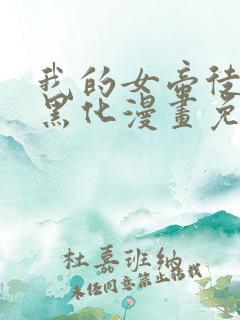 我的女帝徒
黑化漫畫免
杜嘉班纳
未经同意禁止转载